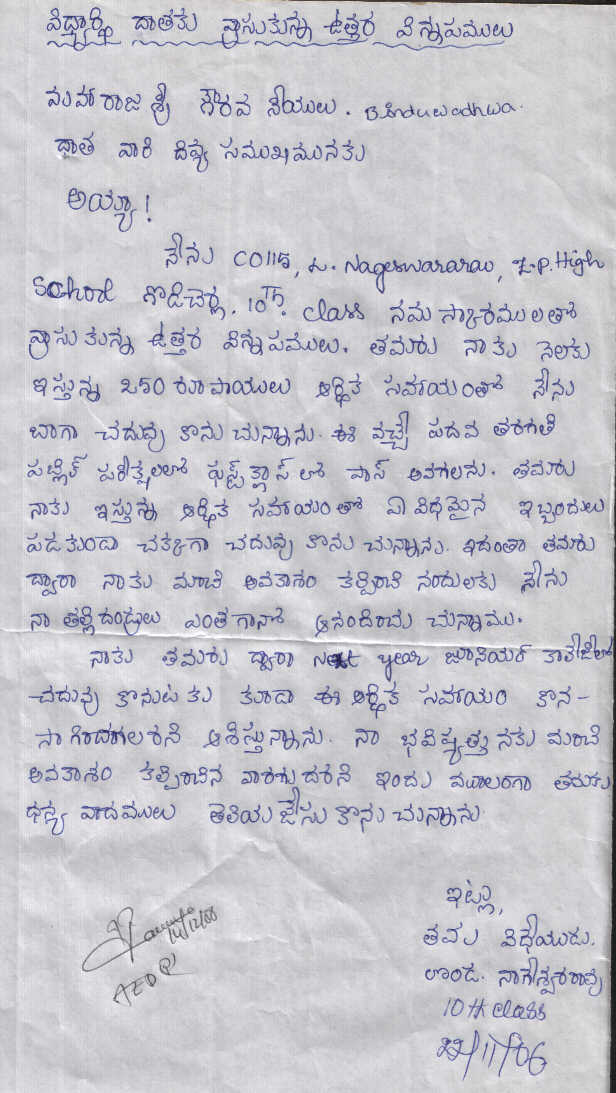 విద్యార్థి దాతకు వ్రాసుకున్న ఉత్తర విన్నపములు
మహారాజశ్రీ గౌరవనీయులు. Bindu wadhwa.
దాత వారి దివ్య సముఖమునకు
అయ్యా!
నేను C0115, L. Nageswararao, Z.P. High
School గొడిచర్ల. 10Th. class నమస్కారములతో
వ్రాసుకున్న ఉత్తర విన్నపములు. తమరు నాకు నెలకు
ఇస్తున్న 250 రూపాయులు ఆర్థిక సహాయంతో నేను
బాగా చదువు కొనుచున్నాను. ఈ వచ్చే పదవ తరగతి
పబ్లిక్ పరీక్షలలో ఫస్ట్ క్లాస్ లో పాస్ అవగలను. తమరు
నాకు ఇస్తున్న ఆర్థిక సహాయంతో ఏ విధమైన ఇబ్బందులు
పడకుండా చక్కగా చదువు కొనుచున్నాను. ఇదంతా తమరు
ద్వారా నాకు మంచి అవకాశం కల్పించి నందులకు నేను
నా తల్లిదండ్రులు ఎంతగానో ఆనందించు చున్నాము.
నాకు తమరు ద్వారా Next year జూనియర్ కాలేజిలో
చదువు కొనుటకు కూడా ఈ ఆర్థిక సహాయం కొన-
సాగించగలరని ఆశిస్తున్నాను. నా భవిష్యత్తునకు మంచి
అవకాశం కల్పించిన వారగుదురని ఇందు మూలంగా తమకు
ధన్యవాదములు తెలియజేసుకొనుచున్నాను.
ఇట్లు,
తమ విధేయుడు.
లొండ. నాగేశ్వరరావు
10th class
22/11/06
14/12/06
AEDP